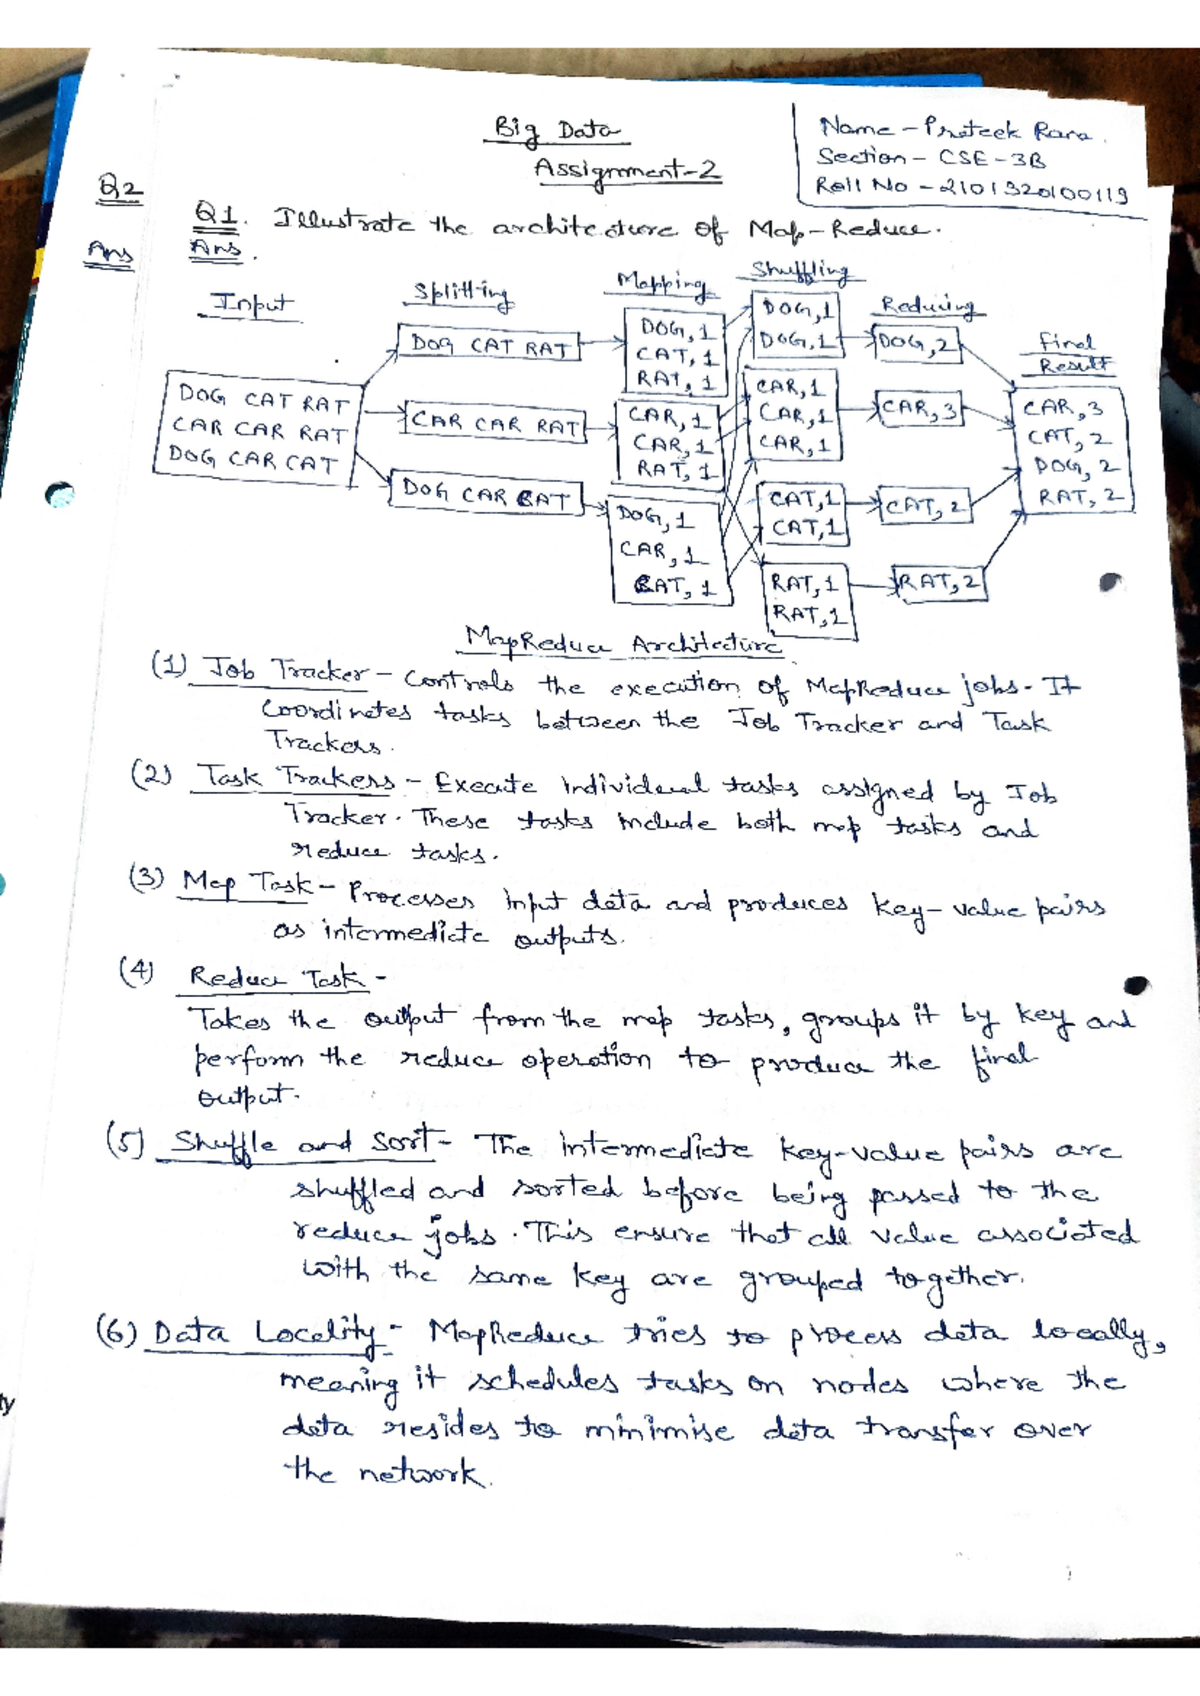 Big Data
Assignment-2
Name - Prateek Rana.
Section - CSE-3B
Roll No - 2101320100119
Q2
Ans
Q1. Illustrate the architecture of Map-Reduce.
Ans.
Input
Splitting
Mapping
Shuffling
Reducing
Final
Result
DOG CAT RAT
CAR CAR RAT
DOG CAR CAT
DOG CAT RAT
CAR CAR RAT
DOG CAR CAT
DOG, 1
CAT, 1
RAT, 1
CAR, 1
CAR, 1
RAT, 1
DOG, 1
CAR, 1
CAT, 1
DOG, 1
DOG, 1
CAR, 1
CAR, 1
CAR, 1
CAT, 1
CAT, 1
RAT, 1
RAT, 1
DOG, 2
CAR, 3
CAT, 2
RAT, 2
CAR, 3
CAT, 2
DOG, 2
RAT, 2
MapReduce Architecture
(1) Job Tracker - Controls the execution of MapReduce jobs. It
Coordinates tasks between the Job Tracker and Task
Trackers.
(2) Task Trackers - Execute individual tasks assigned by Job
Tracker. These tasks include both map tasks and
reduce tasks.
(3) Map Task - Processes input data and produces key-value pairs
as intermediate outputs.
(4) Reduce Task -
Takes the output from the map tasks, groups it by key and
perform the reduce operation to produce the final
output.
(5) Shuffle and Sort - The intermediate key-value pairs are
shuffled and sorted before being passed to the
reduce jobs. This ensure that all value associated
with the same key are grouped together.
(6) Data Locality - MapReduce tries to process data locally,
meaning it schedules tasks on nodes where the
data resides to minimise data transfer over
the network.
ty